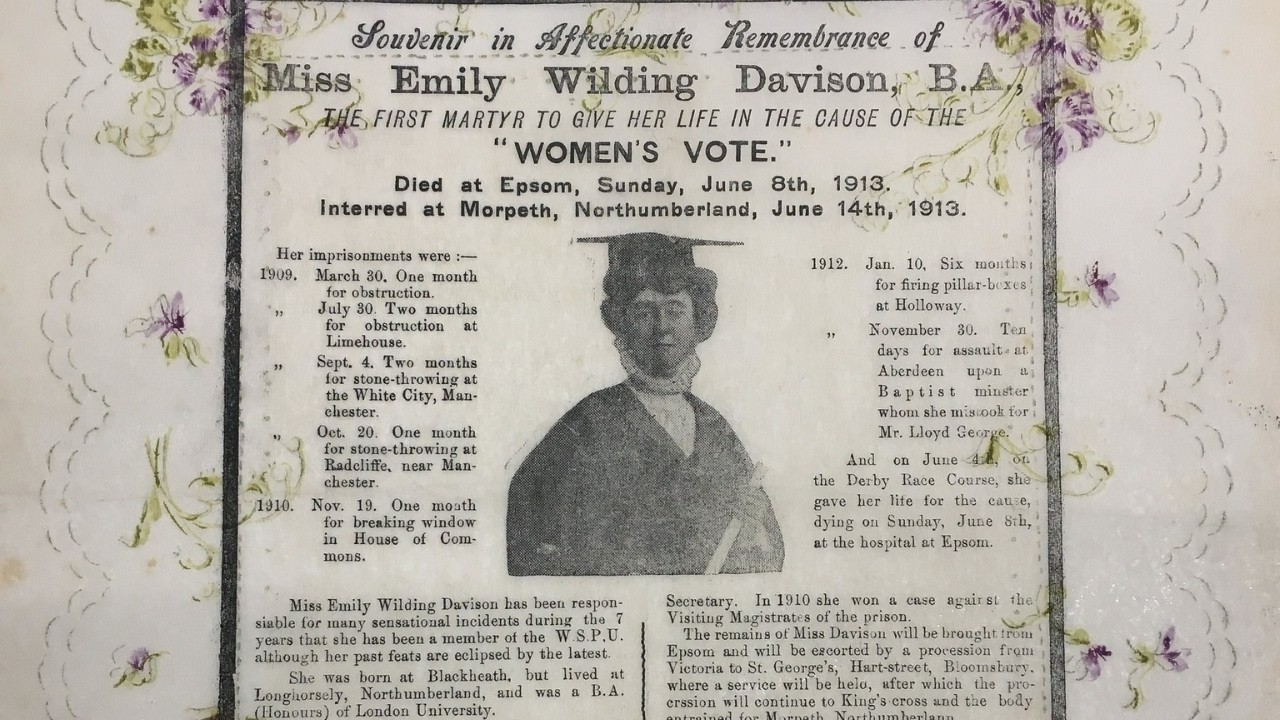 Souvenir in Affectionate Remembrance of
Miss Emily Wilding Davison, B.A.,
THE FIRST MARTYR TO GIVE HER LIFE IN THE CAUSE OF THE
"WOMEN'S VOTE."
Died at Epsom, Sunday, June 8th, 1913.
Interred at Morpeth, Northumberland, June 14th, 1913.
Her imprisonments were :—
1909. March 30. One month
for obstruction.
„ July 30. Two months
for obstruction at
Limehouse.
„ Sept. 4. Two months
for stone-throwing at
the White City, Man-
chester.
„ Oct. 20. One month
for stone-throwing at
Radcliffe, near Man-
chester.
1910. Nov. 19. One month
for breaking window
in House of Com-
mons.
1912. Jan. 10, Six months
for firing pillar-boxes
at Holloway.
„ November 30. Ten
days for assault at
Aberdeen upon a
Baptist minster
whom she mistook for
Mr. Lloyd George.
And on June 4th, on
the Derby Race Course, she
gave her life for the cause,
dying on Sunday, June 8th,
at the hospital at Epsom.
Miss Emily Wilding Davison has been respon-
siable for many sensational incidents during the 7
years that she has been a member of the W.S.P.U.
although her past feats are eclipsed by the latest.
She was born at Blackheath, but lived at
Longhorsely, Northumberland, and was a B.A.
(Honours) of London University.
Secretary. In 1910 she won a case against the
Visiting Magistrates of the prison.
The remains of Miss Davison will be brought from
Epsom and will be escorted by a procession from
Victoria to St. George's, Hart-street, Bloomsbury.
where a service will be held, after which the pro-
cession will continue to King's cross and the body
entrained for Morpeth, Northumberland